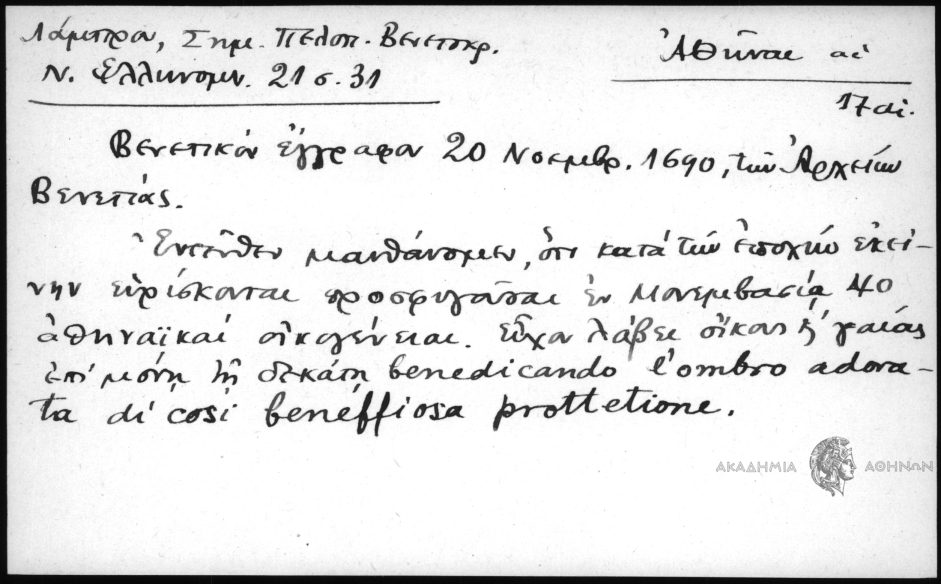 Λάμπρου, Σημ. Πελοπ. Βενετοκρ.
Ν. Ελληνομν. 21 σ. 31
Ἀθῆναι αἱ
17 αἰ.
Βενετικὸν ἔγγραφον 20 Νοεμβρ. 1690, τῶν Ἀρχείων
Βενετίας.
Ἐντεῦθεν μανθάνομεν, ὅτι κατά τήν ἐποχήν ἐκεί-
νην εὑρίσκονται προσφυγοῦσαι ἐν Μονεμβασίᾳ 40
ἀθηναϊκαί οἰκογένειαι. Εἶχον λάβει οἴκους ἤ γαίας
ἐπί μόνῃ τῇ δεκάτῃ benedicando l'ombro adora-
ta di così benéffiosa prottetione.
ΑΚΑΔΗΜΙΑ ΑΘΗΝΩΝ